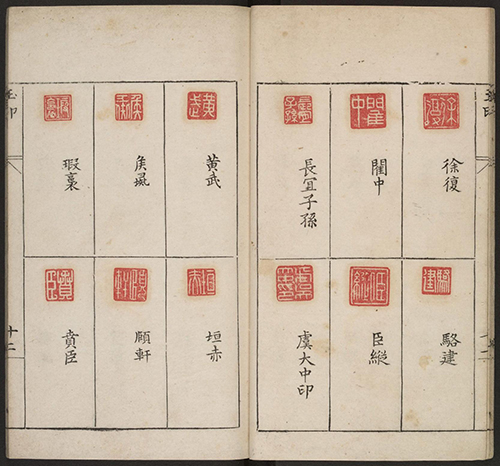 徐復
閻中
長宜子孫
駱建
臣縱
虞大中印
黃武
侯風
瑕裏
垣赤
顧軒
賁臣
玉印
十二